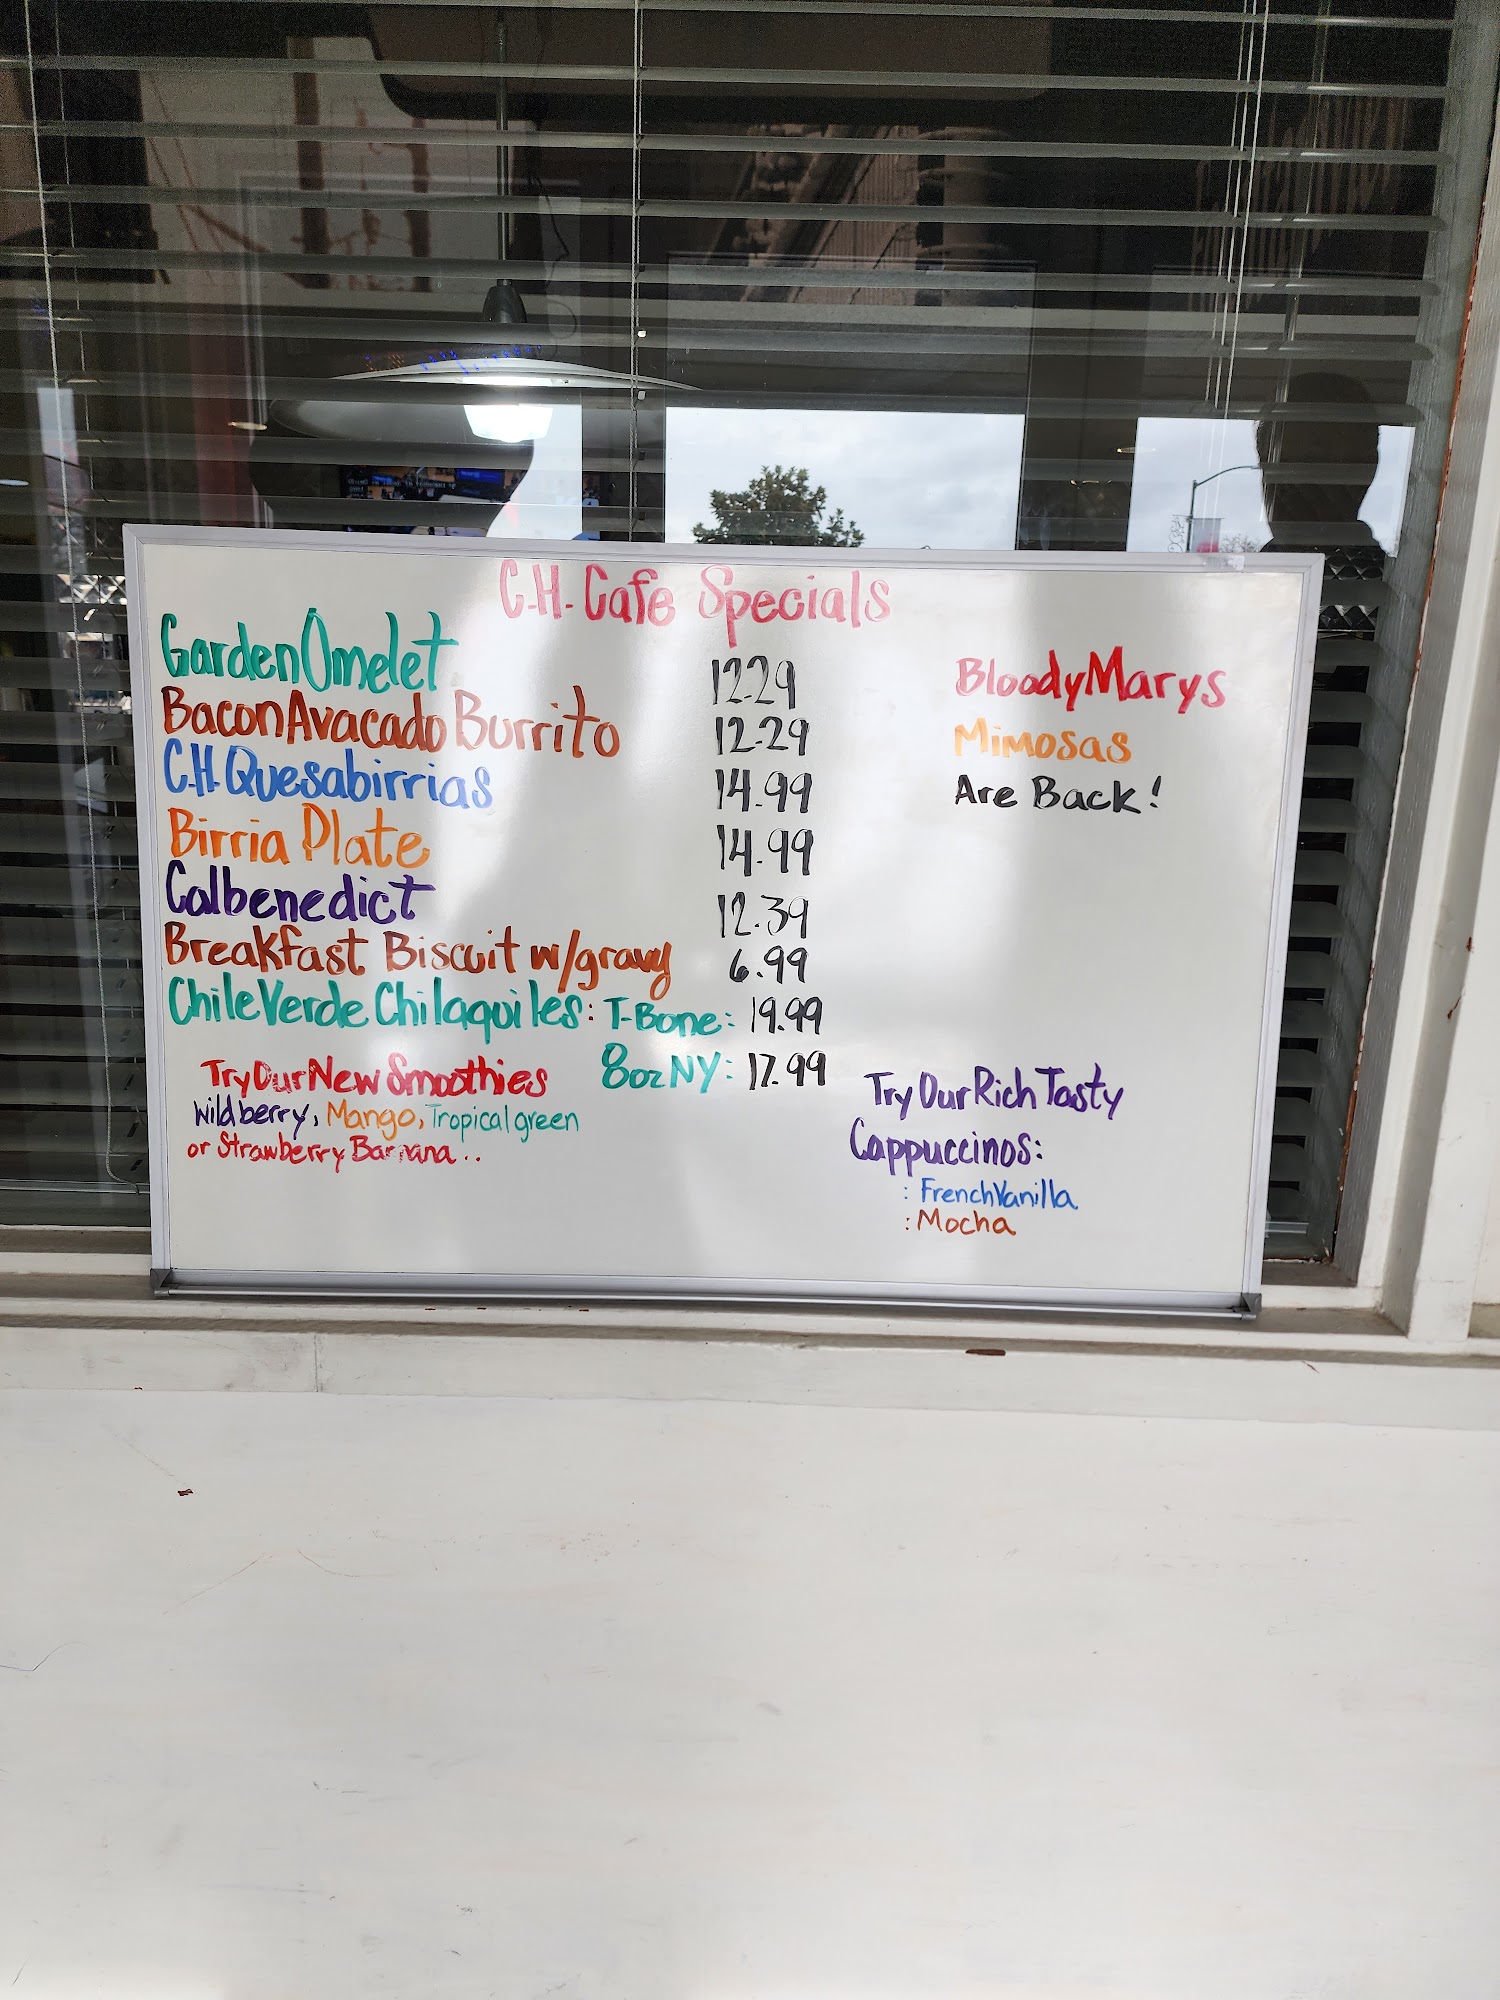 C.H. Cafe Specials
Garden Omelet 12.29
Bacon Avacado Burrito 12.29
C.H. Quesabirrias 14.99
Birria Plate 14.99
Calbenedict 12.39
Breakfast Biscuit w/gravy 6.99
Chile Verde Chilaquiles: T-Bone: 19.99
8oz NY: 17.99
Try Our New Smoothies
Wildberry, Mango, Tropical green
or Strawberry Banana..
Bloody Marys
Mimosas
Are Back!
Try Our Rich Tasty
Cappuccinos:
: French Vanilla
: Mocha